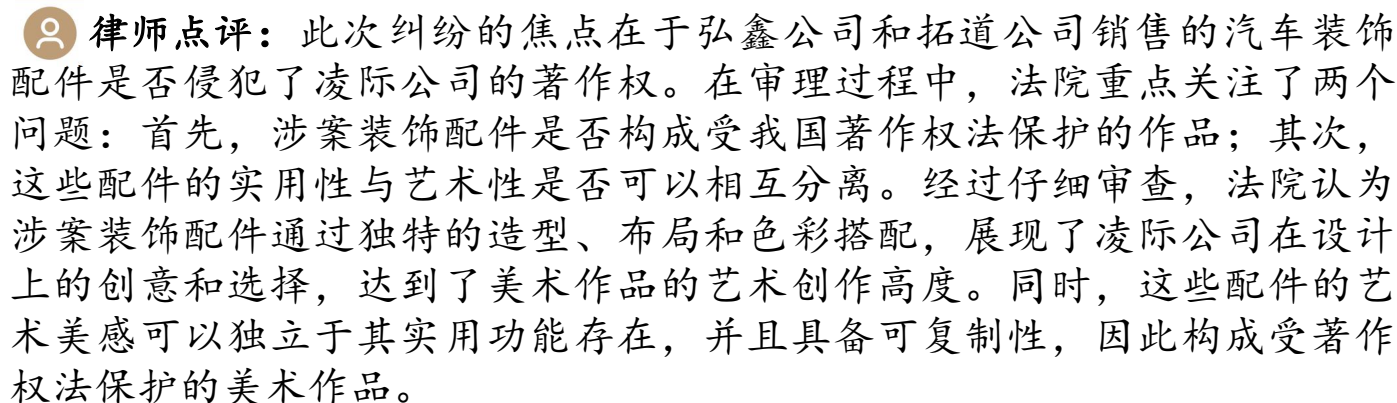 律师点评：此次纠纷的焦点在于弘鑫公司和拓道公司销售的汽车装饰
配件是否侵犯了凌际公司的著作权。在审理过程中，法院重点关注了两个
问题：首先，涉案装饰配件是否构成受我国著作权法保护的作品；其次，
这些配件的实用性与艺术性是否可以相互分离。经过仔细审查，法院认为
涉案装饰配件通过独特的造型、布局和色彩搭配，展现了凌际公司在设计
上的创意和选择，达到了美术作品的艺术创作高度。同时，这些配件的艺
术美感可以独立于其实用功能存在，并且具备可复制性，因此构成受著作
权法保护的美术作品。